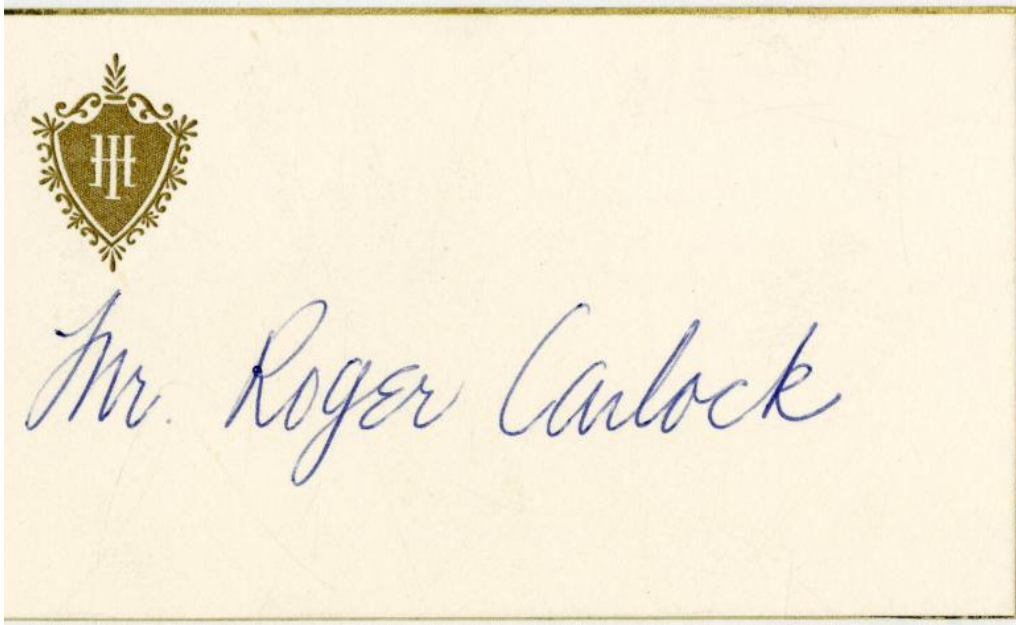 Mr. Roger Carlock